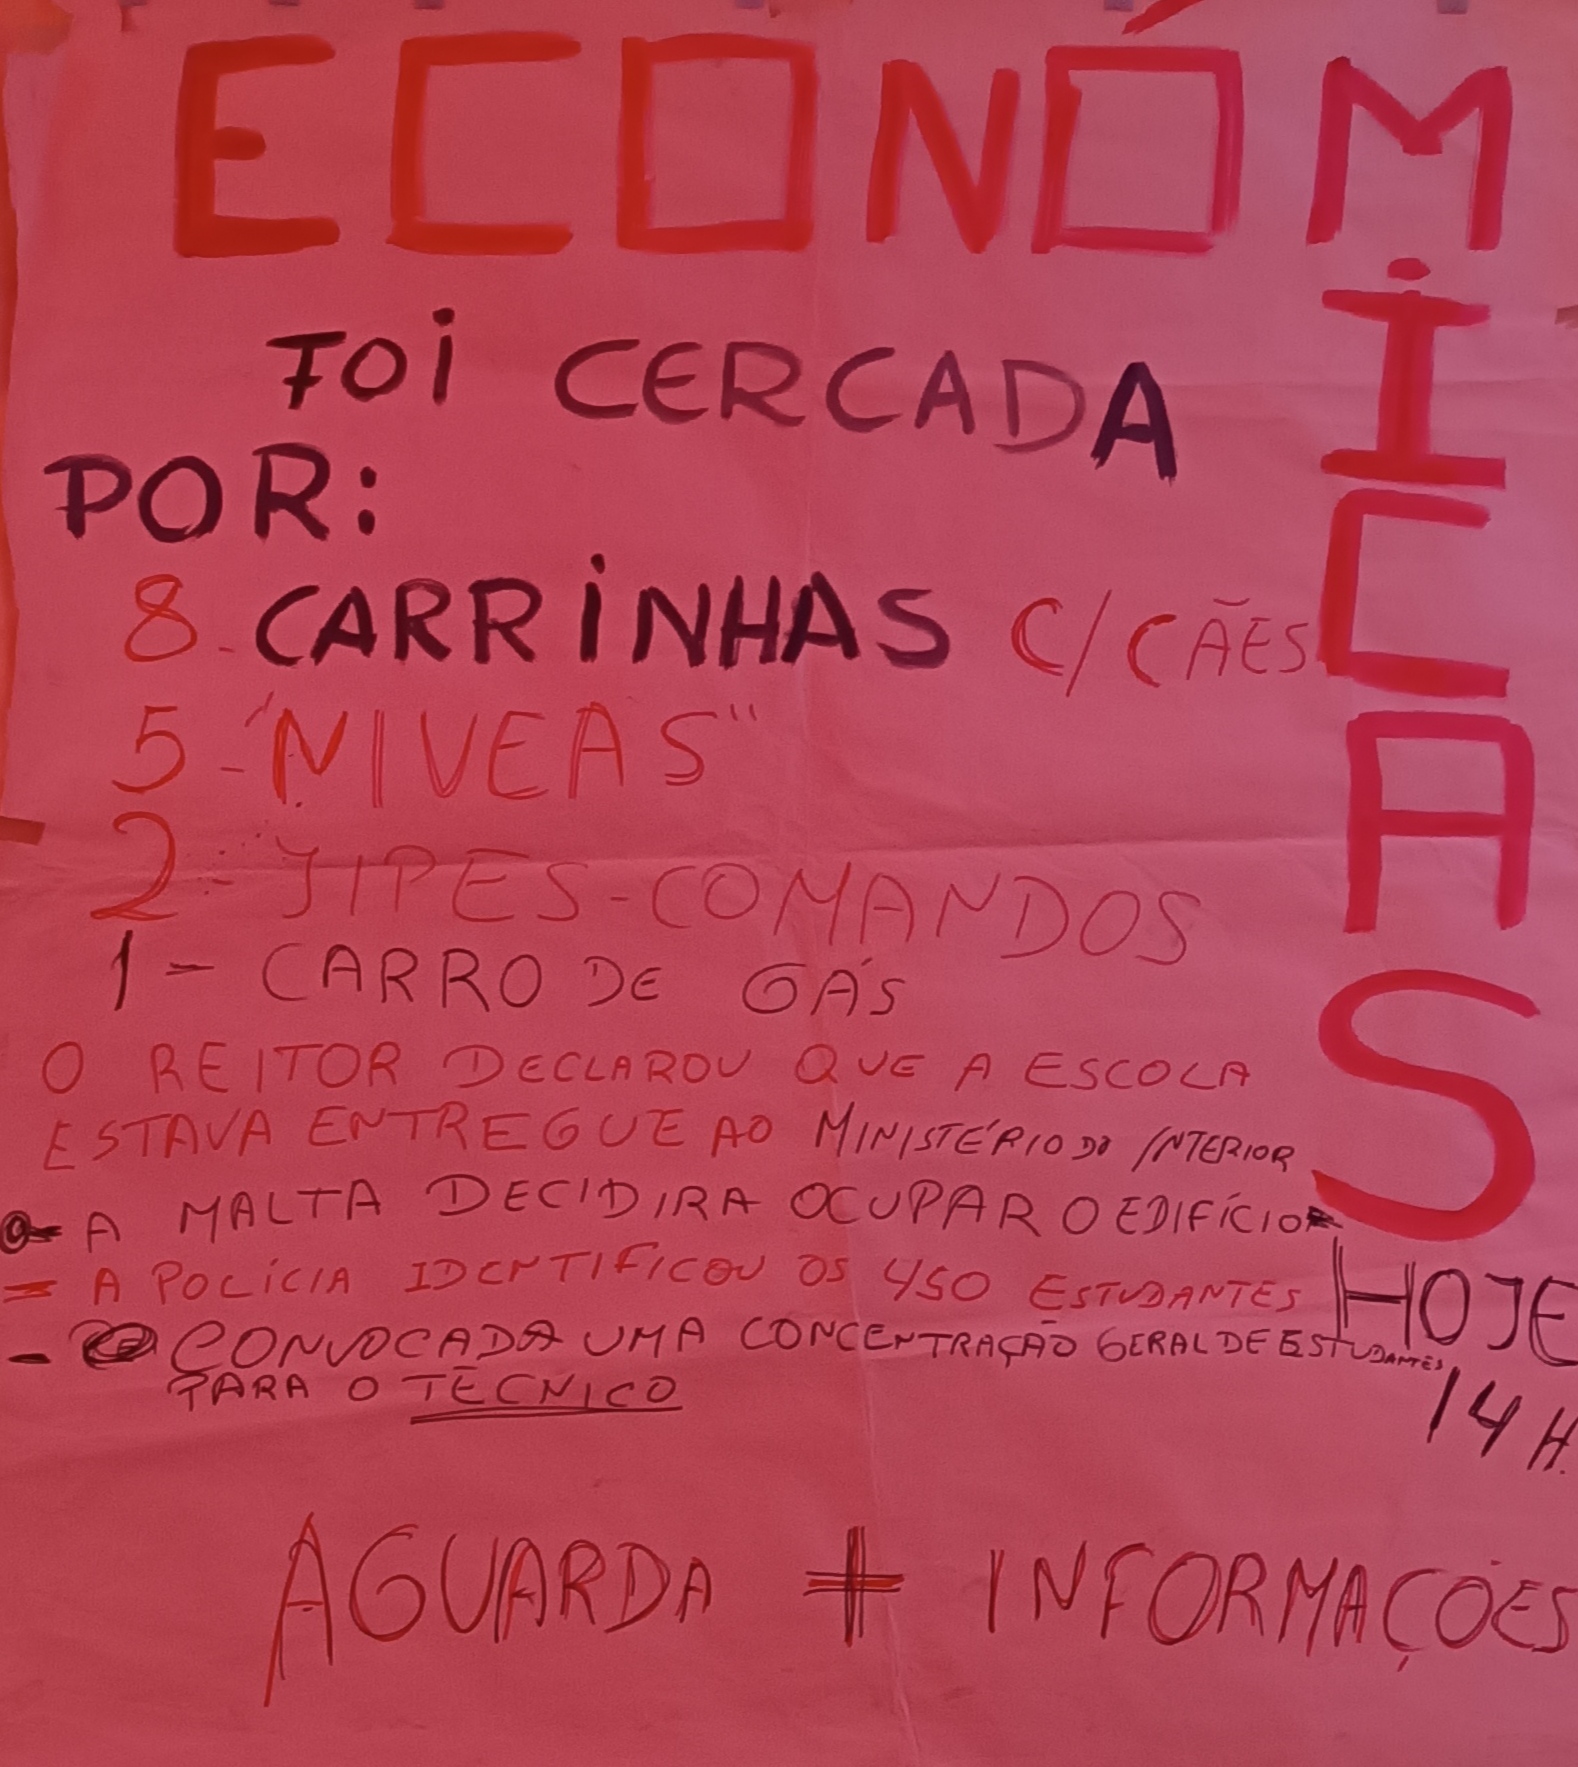 ECONÓMICAS
FOI CERCADA
POR:
8 - CARRINHAS C/CÃES
5 - "NIVEAS"
2 - JIPES-COMANDOS
1 - CARRO DE GÁS
O REITOR DECLAROU QUE A ESCOLA
ESTAVA ENTREGUE AO MINISTÉRIO DO INTERIOR
- A MALTA DECIDIRA OCUPAR O EDIFÍCIO
- A POLÍCIA IDENTIFICOU OS 450 ESTUDANTES
- CONVOCADA UMA CONCENTRAÇÃO GERAL DE ESTUDANTES
PARA O TÉCNICO
HOJE
14 H.
AGUARDA + INFORMAÇÕES